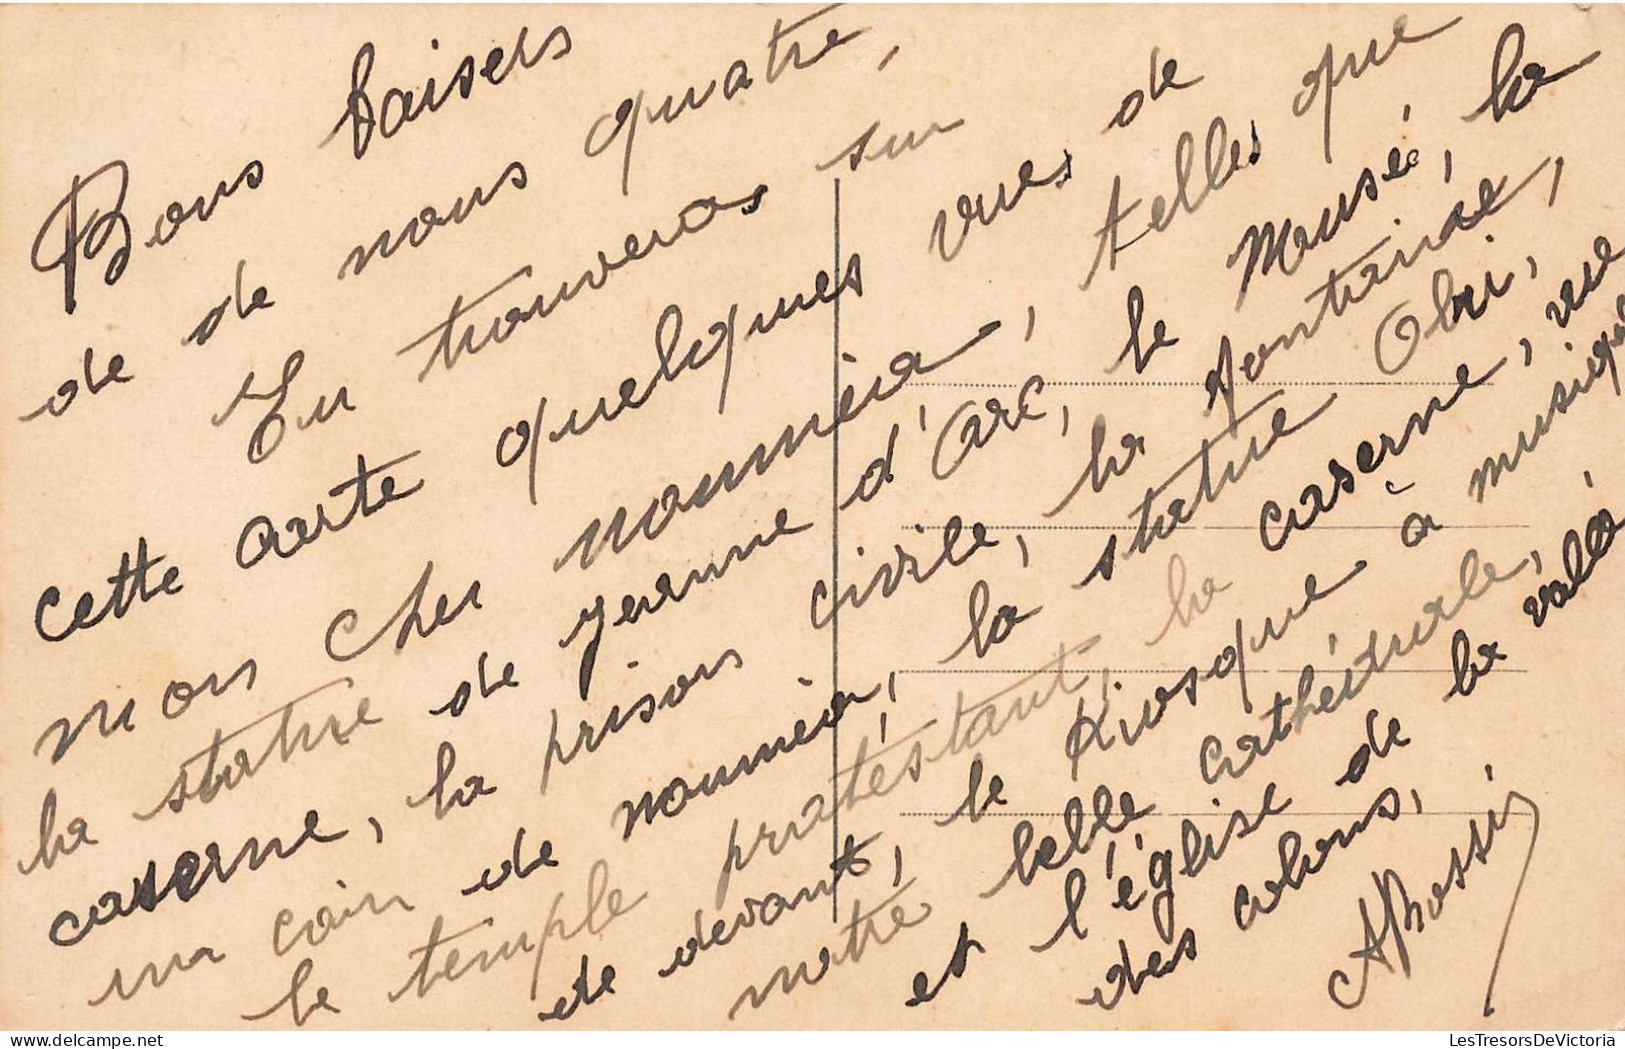 Bons baisers
de de nous quatre,
Tu trouveras sur
cette carte quelques vues de
mon cher nouméa, telles que
la statue de Jeanne d'Arc, le Musée, la
caserne, la prison civile, la fontaine,
un coin de nouméa, la statue Olri,
le temple protestant, la caserne, vue
de devant, le Kiosque à musique
notre belle cathédrale,
et l'église de la vallé
des colons,
ARossi
LesTresorsDeVictoria